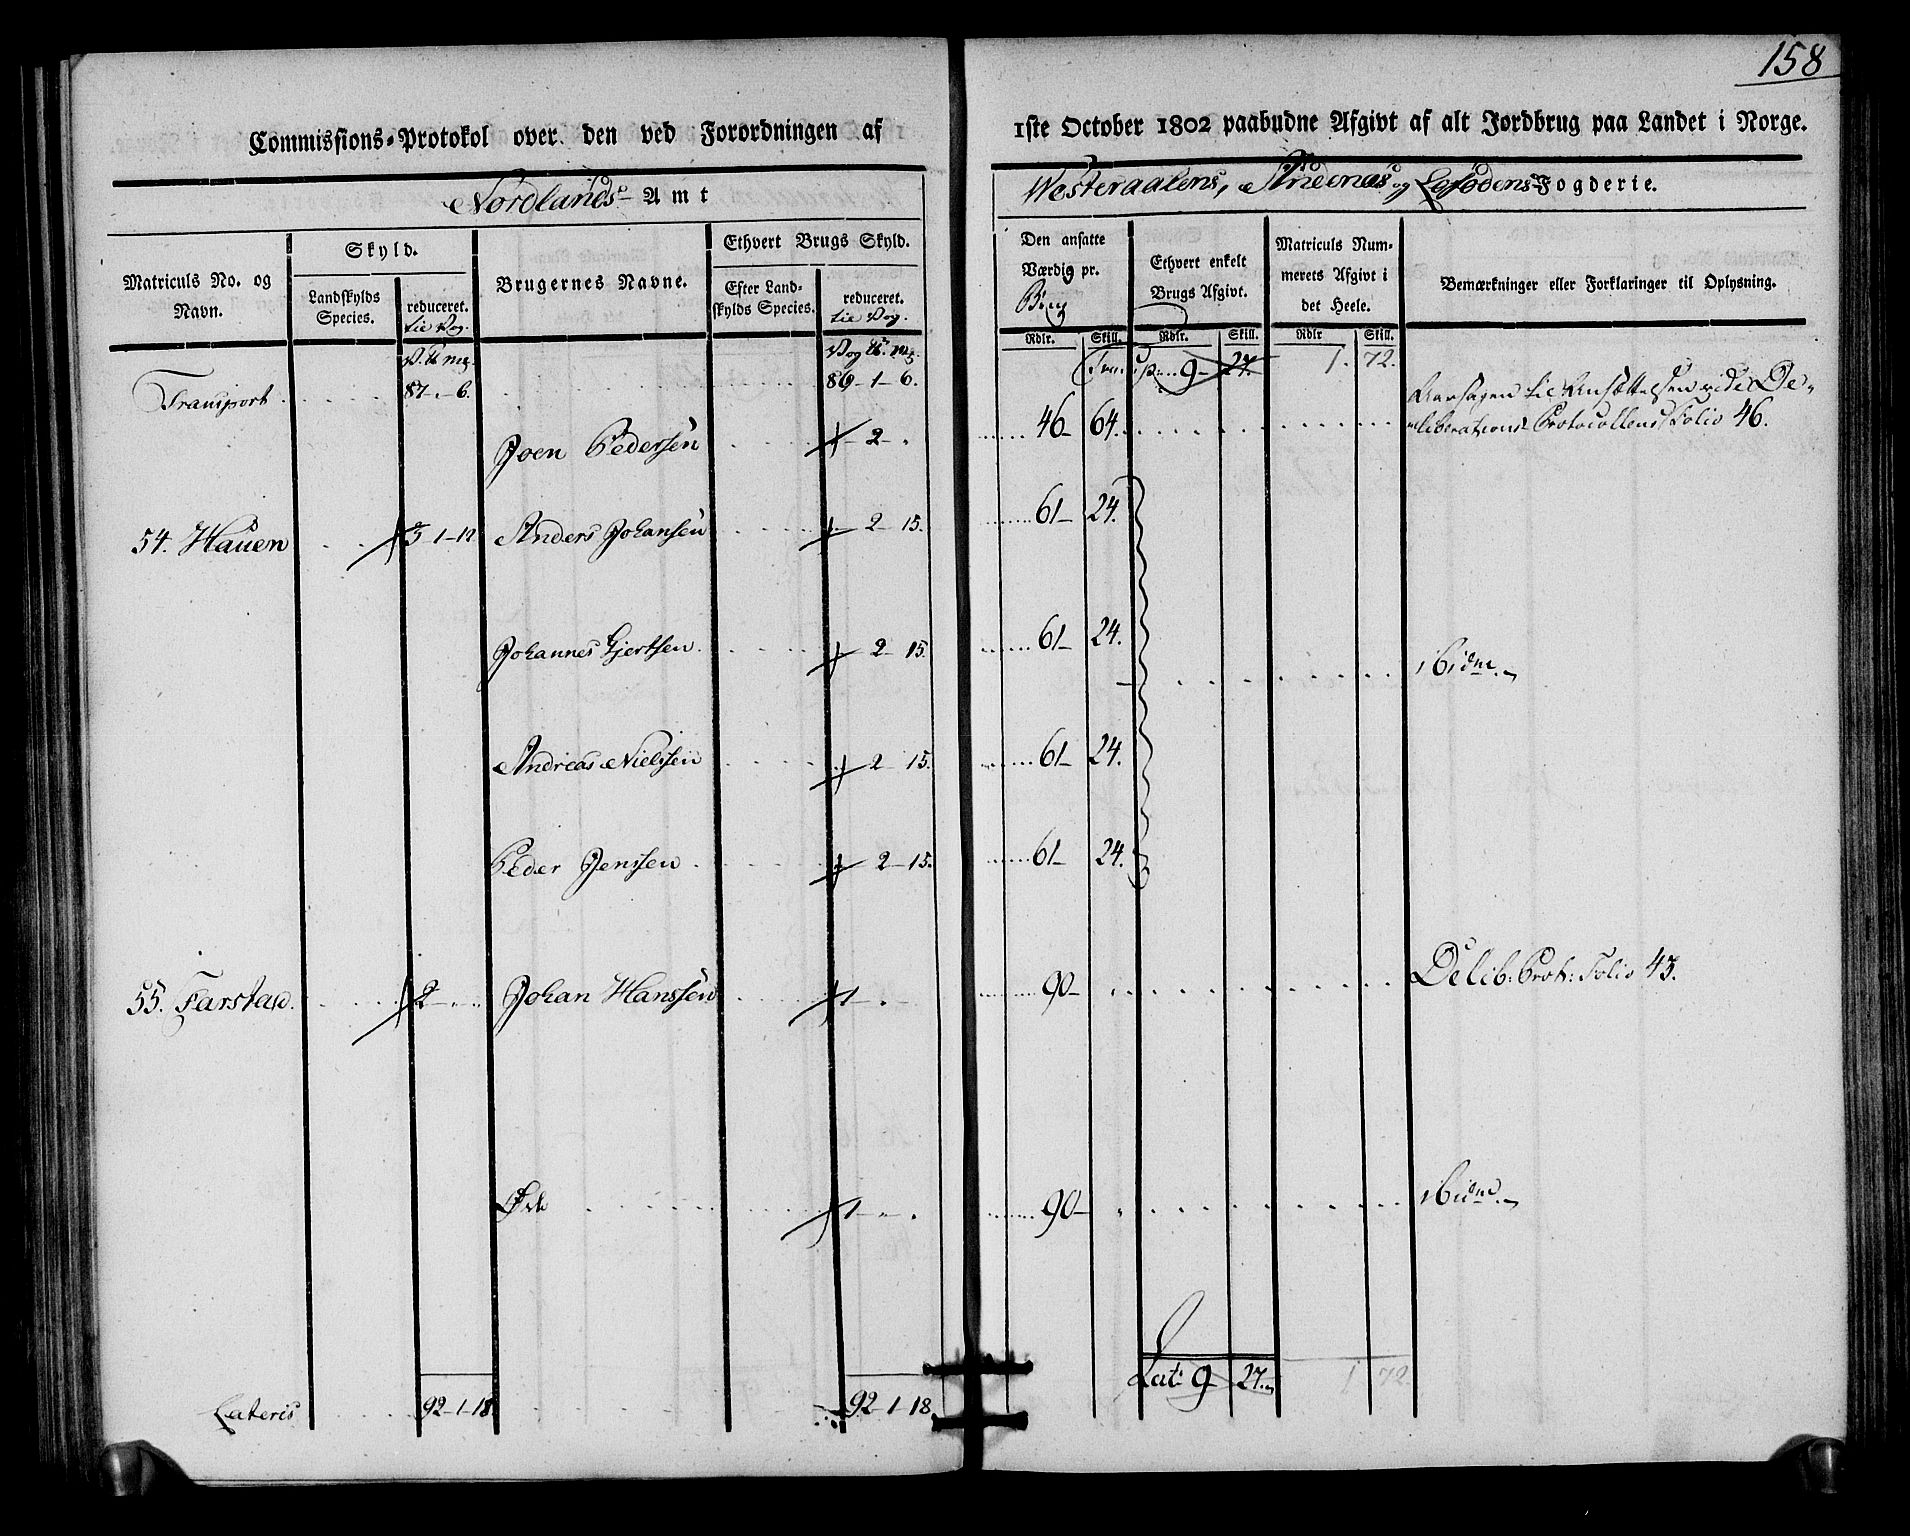 158
Commissions-Protokol over den ved Forordningen af 1ste October 1802 paabudne Afgivt af alt Jordbrug paa Landet i Norge.
Nordlands Amt
Westeraalens, Andenæs og Lofodens Fogderie.
Matriculs No. og Navn.
Skyld.
Landskylds Species.
reduceret. til Vog.
Brugernes Navne.
Ethvert Brugs Skyld.
Efter Landskylds Species.
reduceret. til Vog.
Den ansatte Værdie pr. Brug
Ethvert enkelt Brugs Afgivt.
Matriculs Nummerets Afgivt i det Heele.
Bemærkninger eller Forklaringer til Oplysning.
Rdlr. Skill. Rdlr. Skill. Rdlr Skill.
Transport 87 - 6. 86 - 1 - 6. 9 - 27. 1. 72.
Joen Pedersen - 2 - . 46 - 64. Aarsagen til Ansættelsen vide De-
liberations Protocollens Folio 46.
54. Hauen 3 - 1 - 12 Anders Johansen - 2 - 15. 61 - 24.
Johannes Gjertsen - 2 - 15. 61 - 24. ibidm.
Andreas Nielsen - 2 - 15. 61 - 24.
Peder Jensen - 2 - 15. 61 - 24.
55. Farstad. 2 - . - . Johan Hanssen 1 - . - 90 - . Delib: Prot: Folio 43.
Øde 1 - . - . 90 - . ibidm.
Lateris 92 - 1 - 18 92 - 1 - 18 Lat: 9 27. 1 72